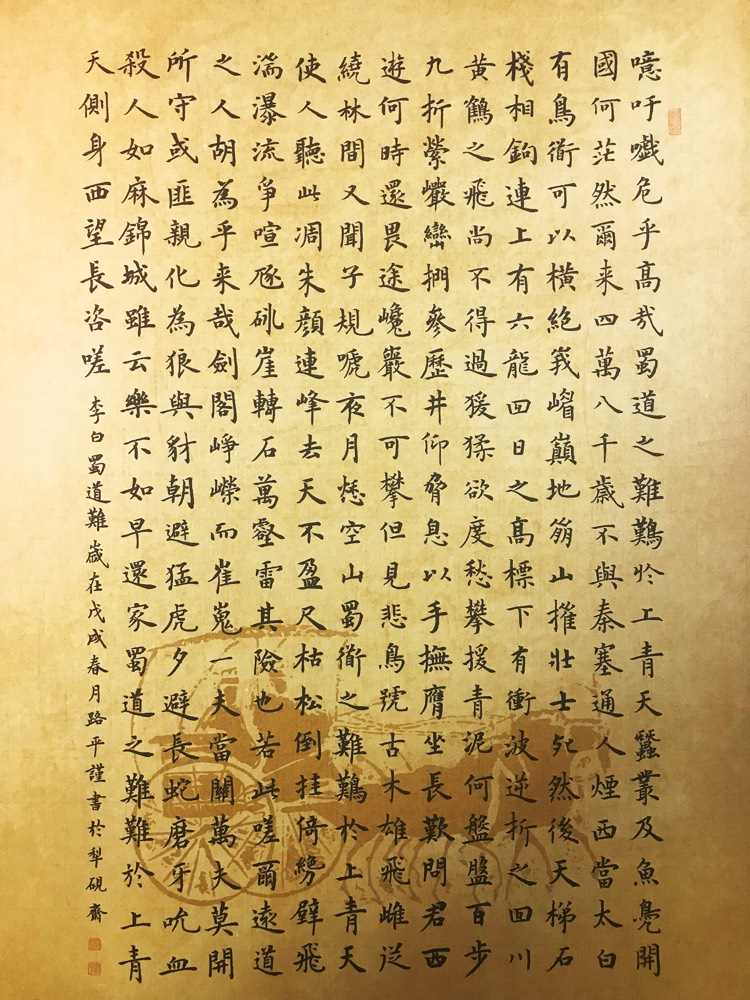 噫吁戲危乎高哉蜀道之難難扵上青天蠶叢及魚鳧開
國何茫然爾来四萬八千歲不與秦塞通人煙西當太白
有鳥衜可以橫絕峩嵋巔地崩山摧壯士死然後天梯石
棧相鉤連上有六龍回日之高標下有衝波逆折之回川
黃鶴之飛尚不得過猨猱欲度愁攀援青泥何盤盤百步
九折縈巖巒捫參歷井仰脅息以手撫膺坐長歎問君西
遊何時還畏途巉巖不可攀但見悲鳥號古木雄飛雌從
繞林間又聞子規嗁夜月愁空山蜀衜之難難於上青天
使人聽此凋朱顏連峰去天不盈尺枯松倒挂倚絕壁飛
湍瀑流爭喧豗砯崖轉石萬壑雷其險也若此嗟爾遠道
之人胡為乎来哉劍閣崢嶸而崔嵬一夫當關萬夫莫開
所守或匪親化為狼與豺朝避猛虎夕避長蛇磨牙吮血
殺人如麻錦城雖云樂不如早還家蜀道之難難於上青
天側身西望長咨嗟 李白蜀道難歲在戊戌春月路平謹書於犁硯齋